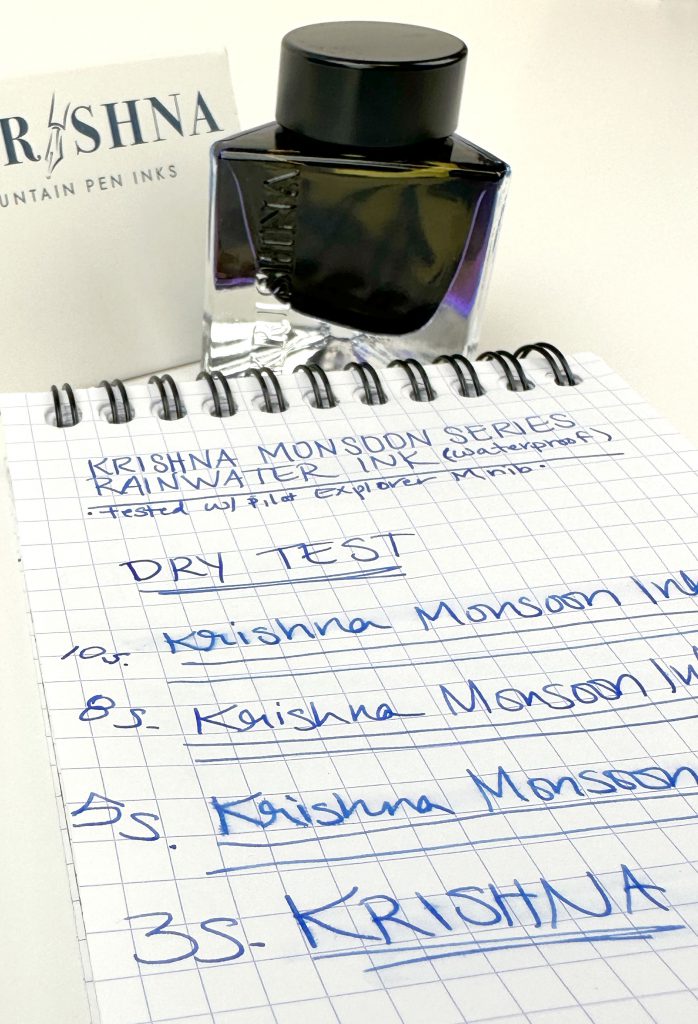 RISHNA
UNTAIN PEN INKS
KRISHNA
KRISHNA MONSOON SERIES
RAINWATER INK (waterproof)
• Tested w/ Pilot Explorer M nib.
DRY TEST
10s. Krishna Monsoon Ink
8s. Krishna Monsoon In
5s. Krishna Monsoon
3s. KRISHNA